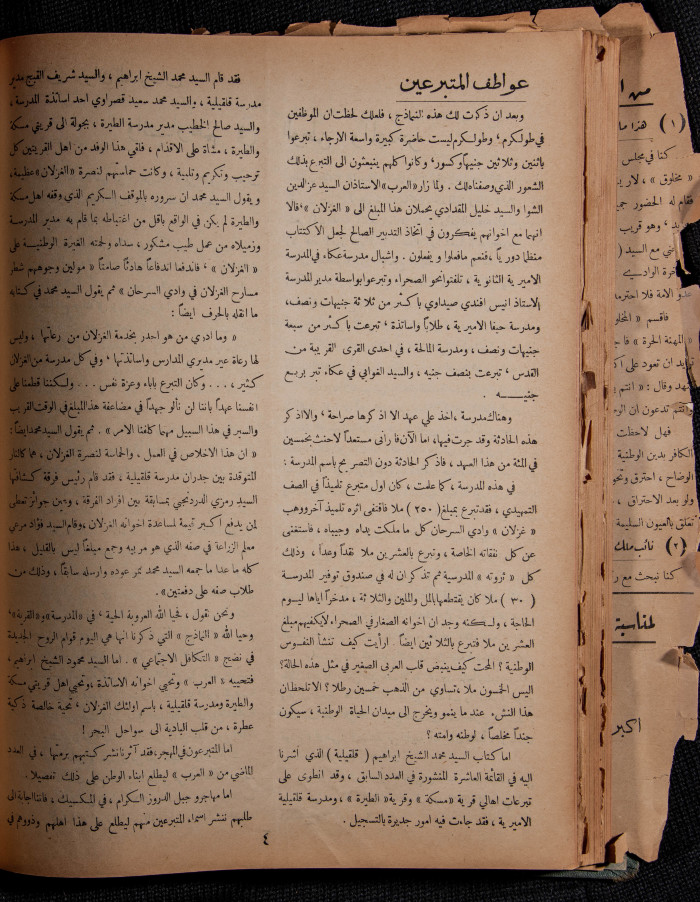 عواطف المتبرعين
وبعد ان ذكرت لك هذه النماذج ، فلعلك لحظت ان الموظفين
في طولكرم ، وطولكرم ليست حاضرة كبيرة واسعة الارجاء ، تبرعوا
باثنين وثلاثين جنيها وكسور ، وكانوا كلهم ينبعثون الى التبرع بذلك
الشعور الذي وصفناه لك . ولما زار « العرب » الاستاذان السيد عز الدين
الشوا والسيد خليل المقدادي يحملان هذا المبلغ الى « الغزلان » ، قالا
انهما مع اخوانهم يفكرون في اتخاذ التدبير الصالح لجعل الاكتتاب
منظما دوريا ، فنعم ما فعلوا و يفعلون . واشبال مدرسة عكاء في المدرسة
الاميرية الثانوية ، تلفتوا نحو الصحراء وتبرعوا بواسطة مدير المدرسة
الاستاذ انيس افندي صيداوي باكثر من ثلاثة جنيهات ونصف ،
ومدرسة حيفا الاميرية ، طلابا واساتذة ، تبرعت باكثر من سبعة
جنيهات ونصف ، ومدرسة المالحة ، في احدى القرى القريبة من
القدس ، تبرعت بنصف جنيه ، والسيد الغوابي في عكاء تبرع بربع
جنيـــه .
وهناك مدرسة ، اخذ علي عهد الا اذكرها صراحة ، والا اذكر
هذه الحادثة وقد جرت فيها ، اما الآن فاراني مستعداً لاحنث بخمسين
في المئة من هذا العهد ، فاذكر الحادثة دون التصريح باسم المدرسة :
في هذه المدرسة ، كما علمت ، كان اول متبرع تلميذاً في الصف
التمهيدي ، فقد تبرع بمبلغ ( ٢٥٠ ) ملا فاقتفى اثره تلميذ آخر ووهب
« غزلان » وادي السرحان كل ما ملكت يداه وجيباه ، فاستغنى
عن كل نفقاته الخاصة ، وتبرع بالعشرين ملا نقداً وعداً ، وذلك
كل « ثروته » المدرسية ثم تذكر ان له في صندوق توفير المدرسة
( ٣٠ ) ملا كان يقتطعها بالمل والملين والثلاثة ، مدخراً اياها ليسوم
الحاجة ، ولكنه وجد ان اخوانه الصغار في الصحراء لا يكفيهم مبلغ
العشرين ملا فتبرع بالثلاثين ايضاً . ارأيت كيف تنشأ النفوس
الوطنية ؟ المحت كيف ينبض قلب العربي الصغير في مثل هذه الحالة ؟
اليس الخمسون ملا ، تساوي من الذهب خمسين رطلا ؟ الا تلحظ ان
هذا النشء عندما ينمو ويخرج الى ميدان الحياة الوطنية ، سيكون
جنداً مخلصاً ، لوطنه وامته ؟
اما كتاب السيد محمد الشيخ ابراهيم ( قلقيلية ) الذي اشرنا
اليه في القائمة العاشرة المنشورة في العدد السابق ، وقد انطوى على
تبرعات اهالي قرية « مسكة » وقرية « الطيرة » ، ومدرسة قلقيلية
الاميرية ، فقد جاءت فيه امور جديرة بالتسجيل .
فقد قام السيد محمد الشيخ ابراهيم ، والسيد شريف القبج مدير
مدرسة قلقيلية ، والسيد محمد سعيد قصراوي احد اساتذة المدرسة ،
والسيد صالح الخطيب مدير مدرسة الطيرة ، بجولة الى قريتي مسكة
والطيرة ، مشاة على الاقدام ، فلقي هذا الوفد من اهل القريتين كل
ترحيب وتكريم وتلبية ، وكانت حماستهم لنصرة « الغزلان » عظيمة ،
ويقول السيد محمد ان سروره بالموقف الكريم الذي وقفه اهل مسكة
والطيرة لم يكن في الواقع باقل من اغتباطه بما قام به مدير المدرسة
وزميلاه من عمل طيب مشكور ، سداه ولحمته الغيرة الوطنية على
« الغزلان » ، فاندفعا اندفاعاً هادئاً صامتاً « مولين وجوههم شطر
مسارح الغزلان في وادي السرحان » ثم يقول السيد محمد في كتابه
ما انقله بالحرف ايضاً :
« وما ادري من هو اجدر بخدمة الغزلان من رعاتها ، وليس
لها رعاة غير مديري المدارس واساتذتها ، وفي كل مدرسة من الغزلان
كثير ، . . . وكان التبرع باباء وعزة نفس . . . ولكننا قطعنا على
انفسنا عهداً باننا لن نألو جهداً في مضاعفة هذا المبلغ في الوقت القريب
والسير في هذا السبيل مهما كلفنا الامر » . ثم يقول السيد محمد ايضاً :
« ان هذا الاخلاص في العمل ، والحماسة لنصرة الغزلان ، هما كالنار
المتوقدة بين جدران مدرسة قلقيلية ، فقد قام رئيس فرقة كشافتها
السيد رمزي الدردنجي بمسابقة بين افراد الفرقة ، وعين جوائز تعطى
لمن يدفع اكبر قيمة لمساعدة اخوانه الغزلان ، وقام السيد فؤاد مرعي
معلم الزراعة في صفه الذي هو مربيه وجمع مبلغاً ليس بالقليل ، هذا
كله ما عدا ما جمعه السيد محمد نمر عوده وارسله سابقاً ، وذلك من
طلاب صفه على دفعتين » .
ونحن نقول ، فحيا الله العروبة الحية ، في « المدرسة » و« القرية » ،
وحيا الله « النماذج » التي ذكرنا انها هي اليوم قوام الروح الجديدة
في نضج « التكافل الاجتماعي » . اما السيد محمود الشيخ ابراهيم ،
فتحييه « العرب » وتحيي اخوانه الاساتذة ، وتحيي اهل قريتي مسكة
والطيرة ومدرسة قلقيلية ، باسم اولئك الغزلان ، تحية خالصة ذكية
عطرة ، من قلب البادية الى سواحل البحر !
اما المتبرعون في المهجر ، فقد آثرنا نشر كتبهم برمتها ، في العدد
الماضي من « العرب » ليطلع ابناء الوطن على ذلك تفصيلا .
اما مهاجرو جبل الدروز الكرام ، في المكسيك ، فاننا اجابة الى
طلبهم ننشر اسماء المتبرعين منهم ليطلع على هذا اهلهم وذووهم في
٤
( ١ ) هذا ما
كنا في مجلس
( ٢ ) نائب ملك
كنا نبحث مع
لمناسبة
اكبر